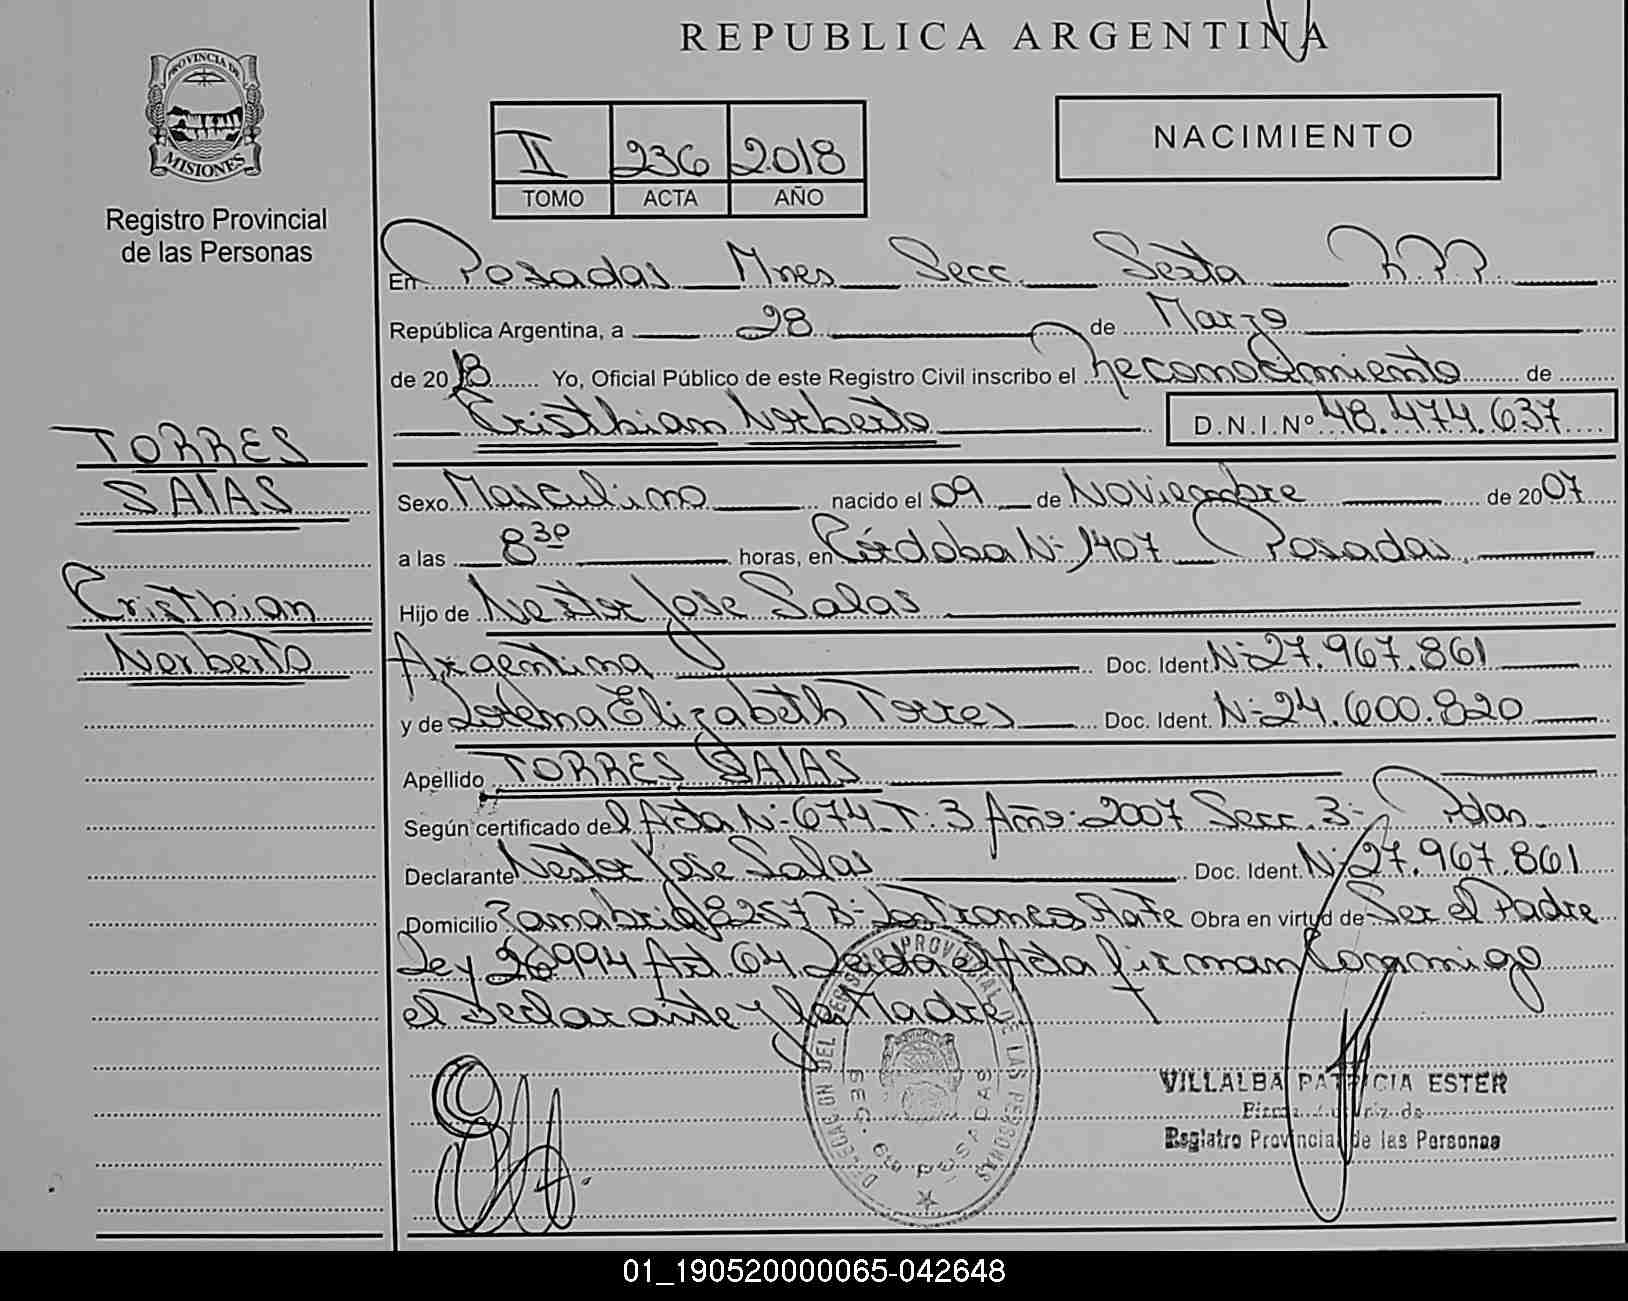 REPUBLICA ARGENTINA
PROVINCIA DE
MISIONES
Registro Provincial
de las Personas
II 236 2018
TOMO ACTA AÑO
NACIMIENTO
En Posadas Mnes Secc. Sexta R.P.P.
República Argentina, a 28 de Marzo
de 2018 Yo, Oficial Público de este Registro Civil inscribo el Reconocimiento de
Cristhian Norberto D.N.I.Nº 48.474.637
TORRES
SALAS
Cristhian
Norberto
Sexo Masculino nacido el 09 de Noviembre de 2007
a las 8 30 horas, en Córdoba Nº 1407 Posadas
Hijo de Nestor Jose Salas
Argentina Doc. Ident. Nº 27.967.861
y de Lorena Elizabeth Torres Doc. Ident. Nº 24.600.820
Apellido TORRES SALAS
Según certificado del Acta Nº 674 T: 3 Año: 2007 Secc. 3º Pdas
Declarante Nestor Jose Salas Doc. Ident. Nº 27.967.861
Domicilio 8257 Bº Sta Fe Obra en virtud de Ser el Padre
Ley 26994 Art. 64 Leida el Acta firman Conmigo
el Declarante y la Madre
DELEGACION DEL REGISTRO PROVINCIAL DE LAS PERSONAS
SEC. 6ta POSADAS
VILLALBA PATRICIA ESTER
Firma Autoriz. de
Registro Provincial de las Personas
01_190520000065-042648